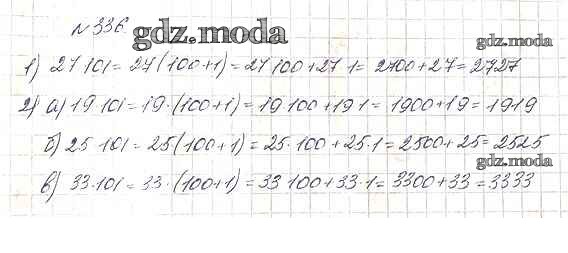 № 336
gdz.moda
gdz.moda
1) 27 101 = 27 (100+1) = 27 100 + 27 1 = 2700 + 27 = 2727
2) а) 19 101 = 19 · (100+1) = 19 100 + 19 1 = 1900 + 19 = 1919
б) 25 101 = 25 (100+1) = 25 · 100 + 25 · 1 = 2500 + 25 = 2525
gdz.moda
в) 33 · 101 = 33 · (100+1) = 33 100 + 33 · 1 = 3300 + 33 = 3333